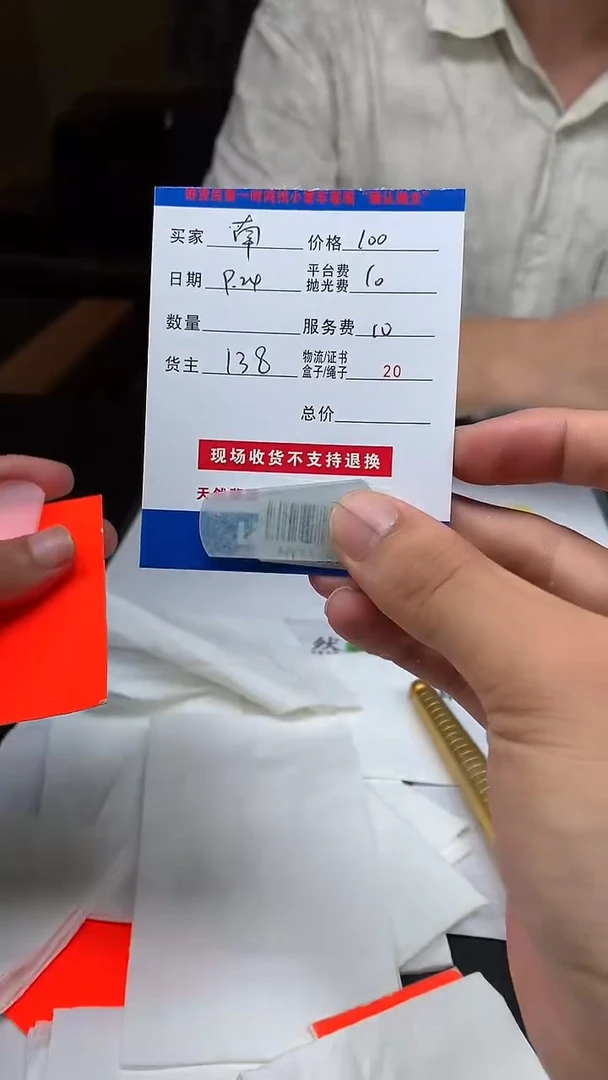 买家 南 价格 100
日期 9.24 平台费 抛光费 10
数量 服务费 10
货主 138 物流/证书 盒子/绳子 20
总价
现场收货不支持退换
天然
然